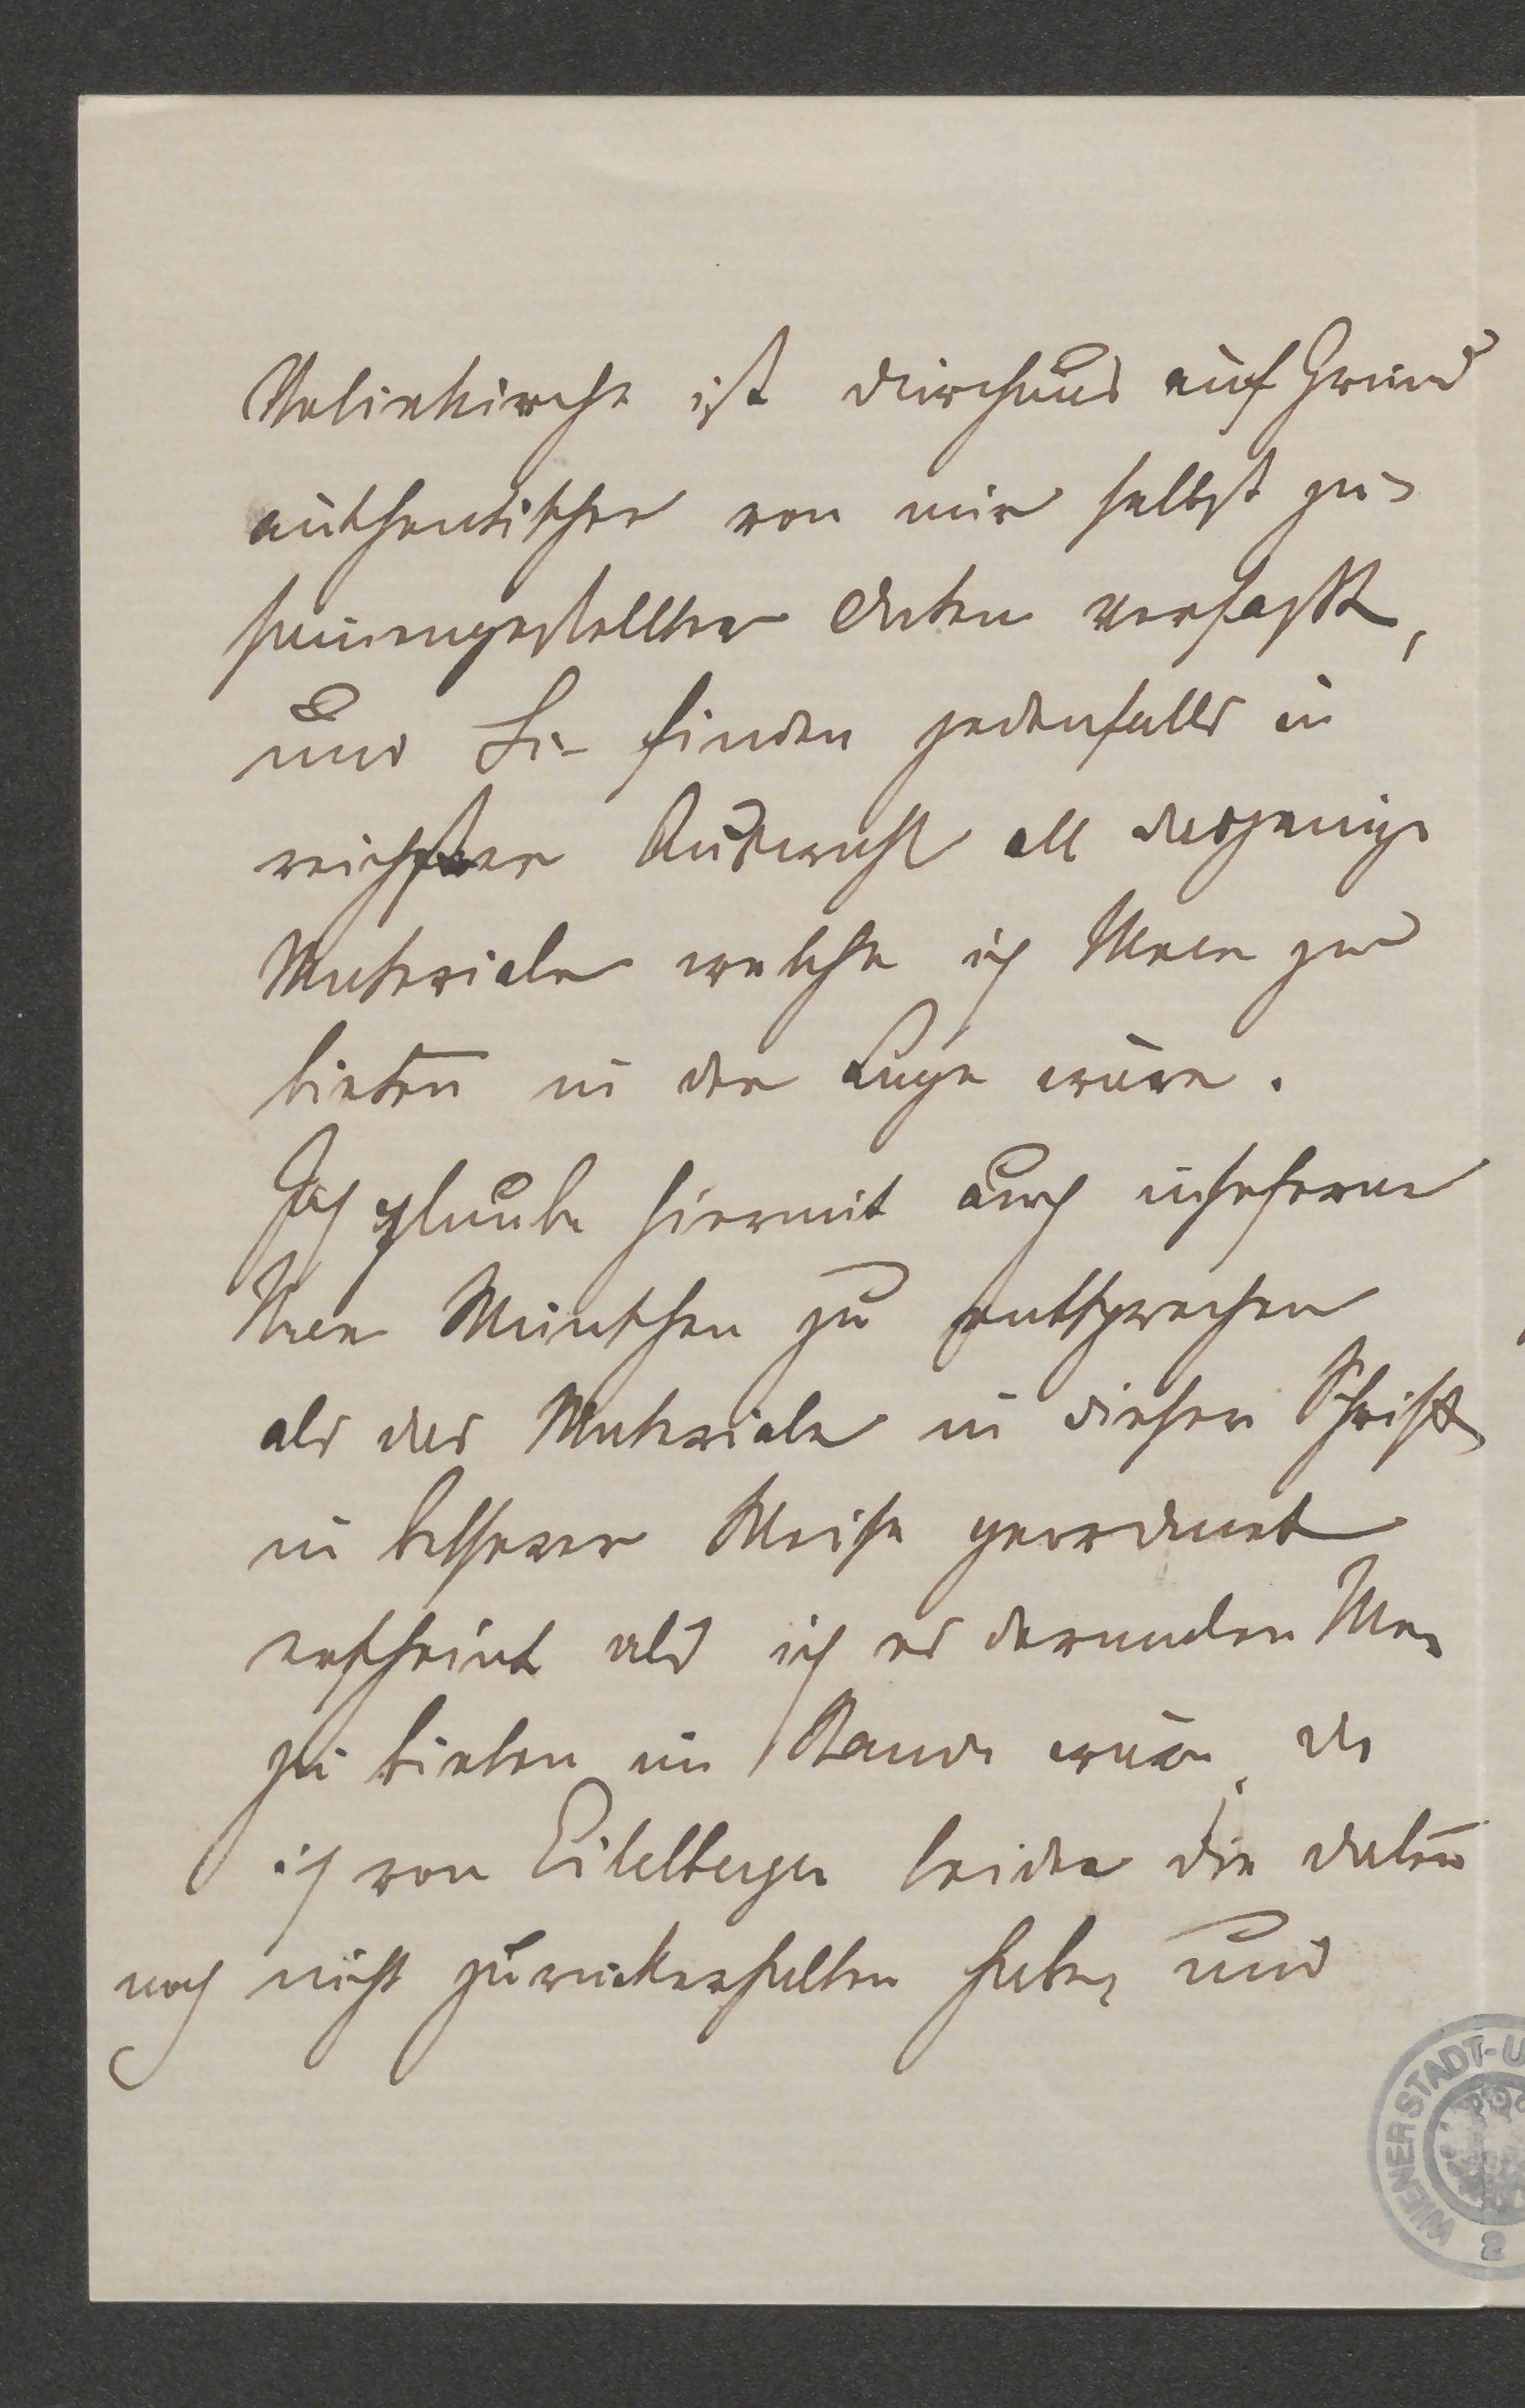 Votivkirche ist durchaus auf Grund
authentischer von mir selbst zu-
sammengestellter Daten verfaßt,
und Sie finden jedenfalls in
reichster Auswahl all dasjenige
Materiale welche ich Ihnen zu
bieten in der Lage wäre.
Ich glaube hiermit auch insoferne
Ihren Wünschen zu entsprechen
als das Materiale in dieser Schrift
in besserer Weise geordnet
erscheint als ich es dermalen Ihnen
zu bieten im Stande wäre, da
ich von Eitelberger leider die daten
noch nicht zurückerhalten habe, und
WIENER STADT-U
2